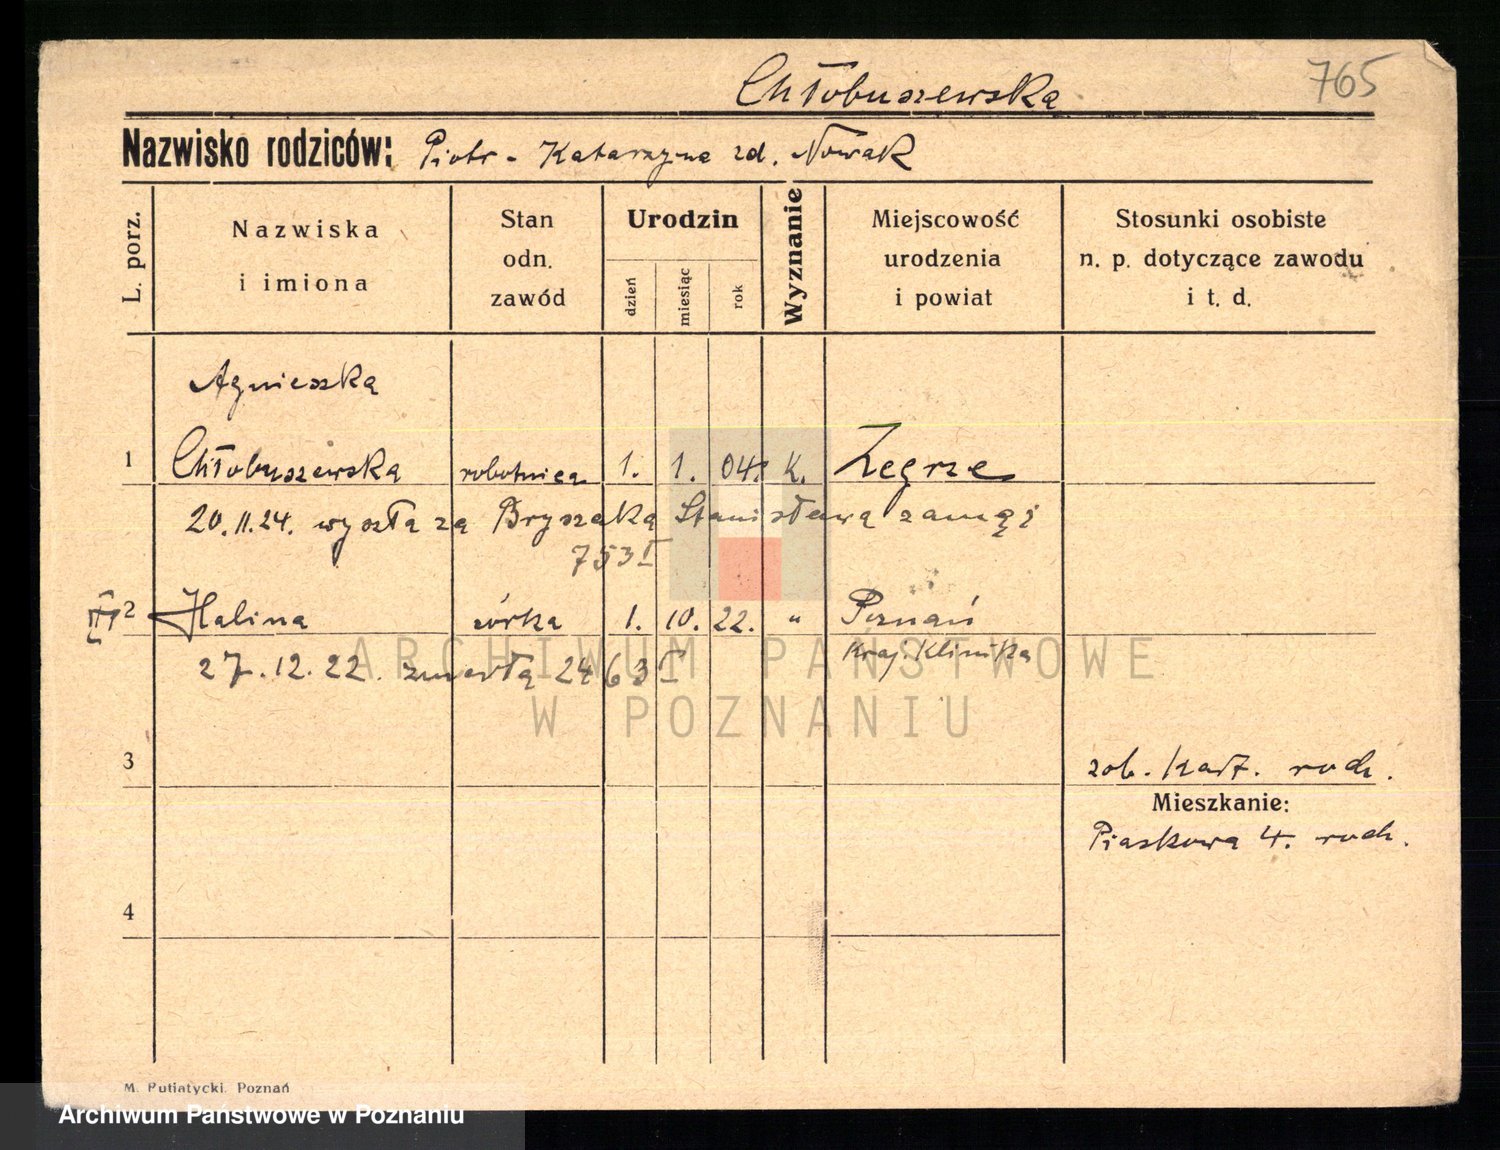 Chłobuszewska 765
Nazwisko rodziców: Piotr - Katarzyna zd. Nowak
L. porz.
Nazwiska
i imiona
Stan
odn.
zawód
Urodzin
dzień
miesiąc
rok
Wyznanie
Miejscowość
urodzenia
i powiat
Stosunki osobiste
n. p. dotyczące zawodu
i t. d.
Agnieszka
1 Chłobuszewska robotnica 1. 1. 04. K. Zegrze
20.11.24. wyszła za Bryszaka Stanisława zamąż
753 I
III 2 Halina córka 1. 10. 22. " Poznań
Kraj. Klinika
27.12.22. zmarła 2463 I
ARCHIWUM PAŃSTWOWE
W POZNANIU
3 zob. kart. rodz.
Mieszkanie:
Piaskowa 4. rodz.
4
M. Putiatycki, Poznań
Archiwum Państwowe w Poznaniu